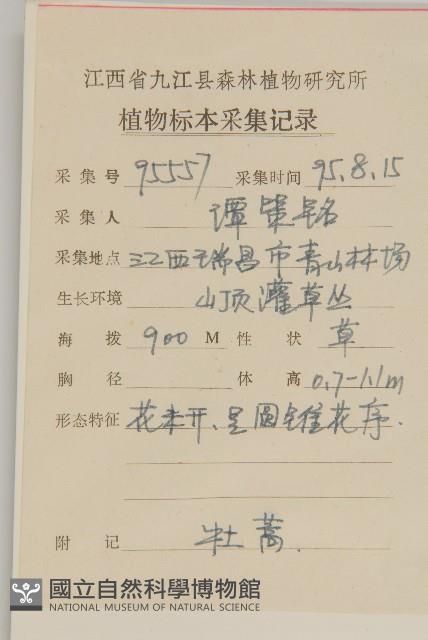 江西省九江县森林植物研究所
植物标本采集记录
采集号 95557 采集时间 95.8.15
采集人 谭策铭
采集地点 江西瑞昌市青山林场
生长环境 山顶灌草丛
海拨 900 M 性状 草
胸径 体高 0.7-1.1m
形态特征 花未开、呈圆锥花序.
附记 牡蒿.
國立自然科學博物館
NATIONAL MUSEUM OF NATURAL SCIENCE